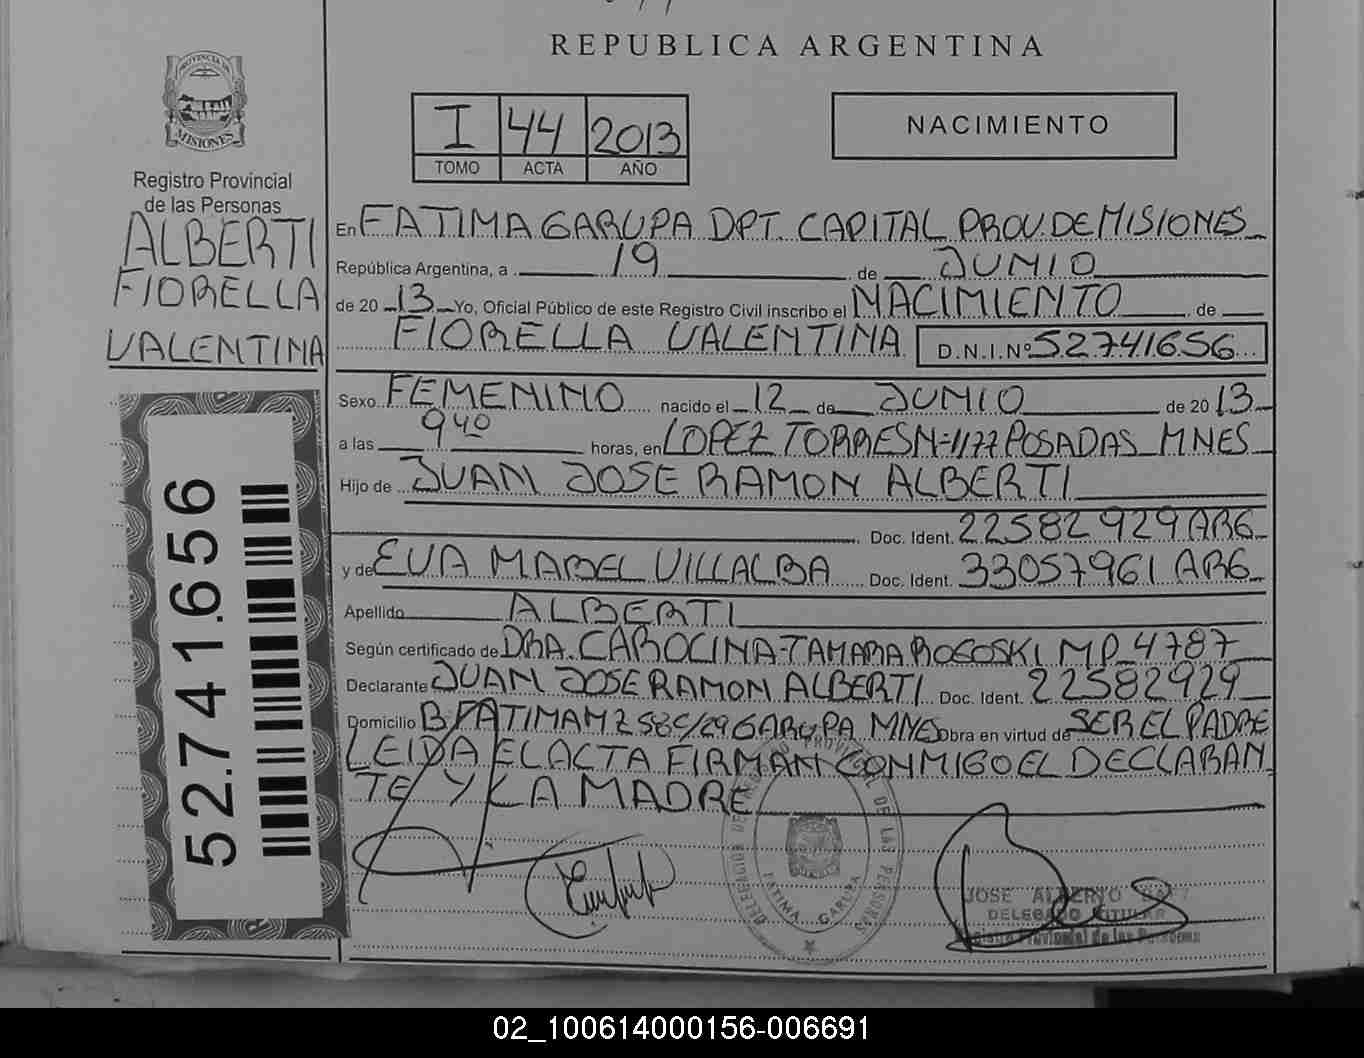 REPUBLICA ARGENTINA
PROVINCIA DE
MISIONES
Registro Provincial
de las Personas
ALBERTI
FIORELLA
VALENTINA
I 44 2013
TOMO ACTA AÑO
NACIMIENTO
En FATIMA GARUPA DPT. CAPITAL PROV. DE MISIONES
República Argentina, a 19 de JUNIO
de 20 13 Yo, Oficial Público de este Registro Civil inscribo el NACIMIENTO de
FIORELLA VALENTINA D.N.I.Nº 52741656
Sexo FEMENINO nacido el 12 de JUNIO de 20 13
a las 9 40 horas, en LOPEZ TORRES N=1177 POSADAS MNES
Hijo de JUAN JOSE RAMON ALBERTI
Doc. Ident. 22582929 ARG
y de EVA MABEL VILLALBA Doc. Ident. 33057961 ARG
Apellido ALBERTI
Según certificado de DRA. CAROLINA TAMARA ROGOSKI MP 4787
Declarante JUAN JOSE RAMON ALBERTI Doc. Ident. 22582929
Domicilio B. FATIMA MZ 58 C/29 GARUPA MNES Obra en virtud de SER EL PADRE
LEIDA EL ACTA FIRMAN CONMIGO EL DECLARAN
TE Y LA MADRE
52.741.656
DELEGACION DEL REGISTRO PROVINCIAL DE LAS PERSONAS
FATIMA GARUPA
JOSE ALBERTO
DELEGADO TITULAR
Registro Provincial de las Personas
02_100614000156-006691